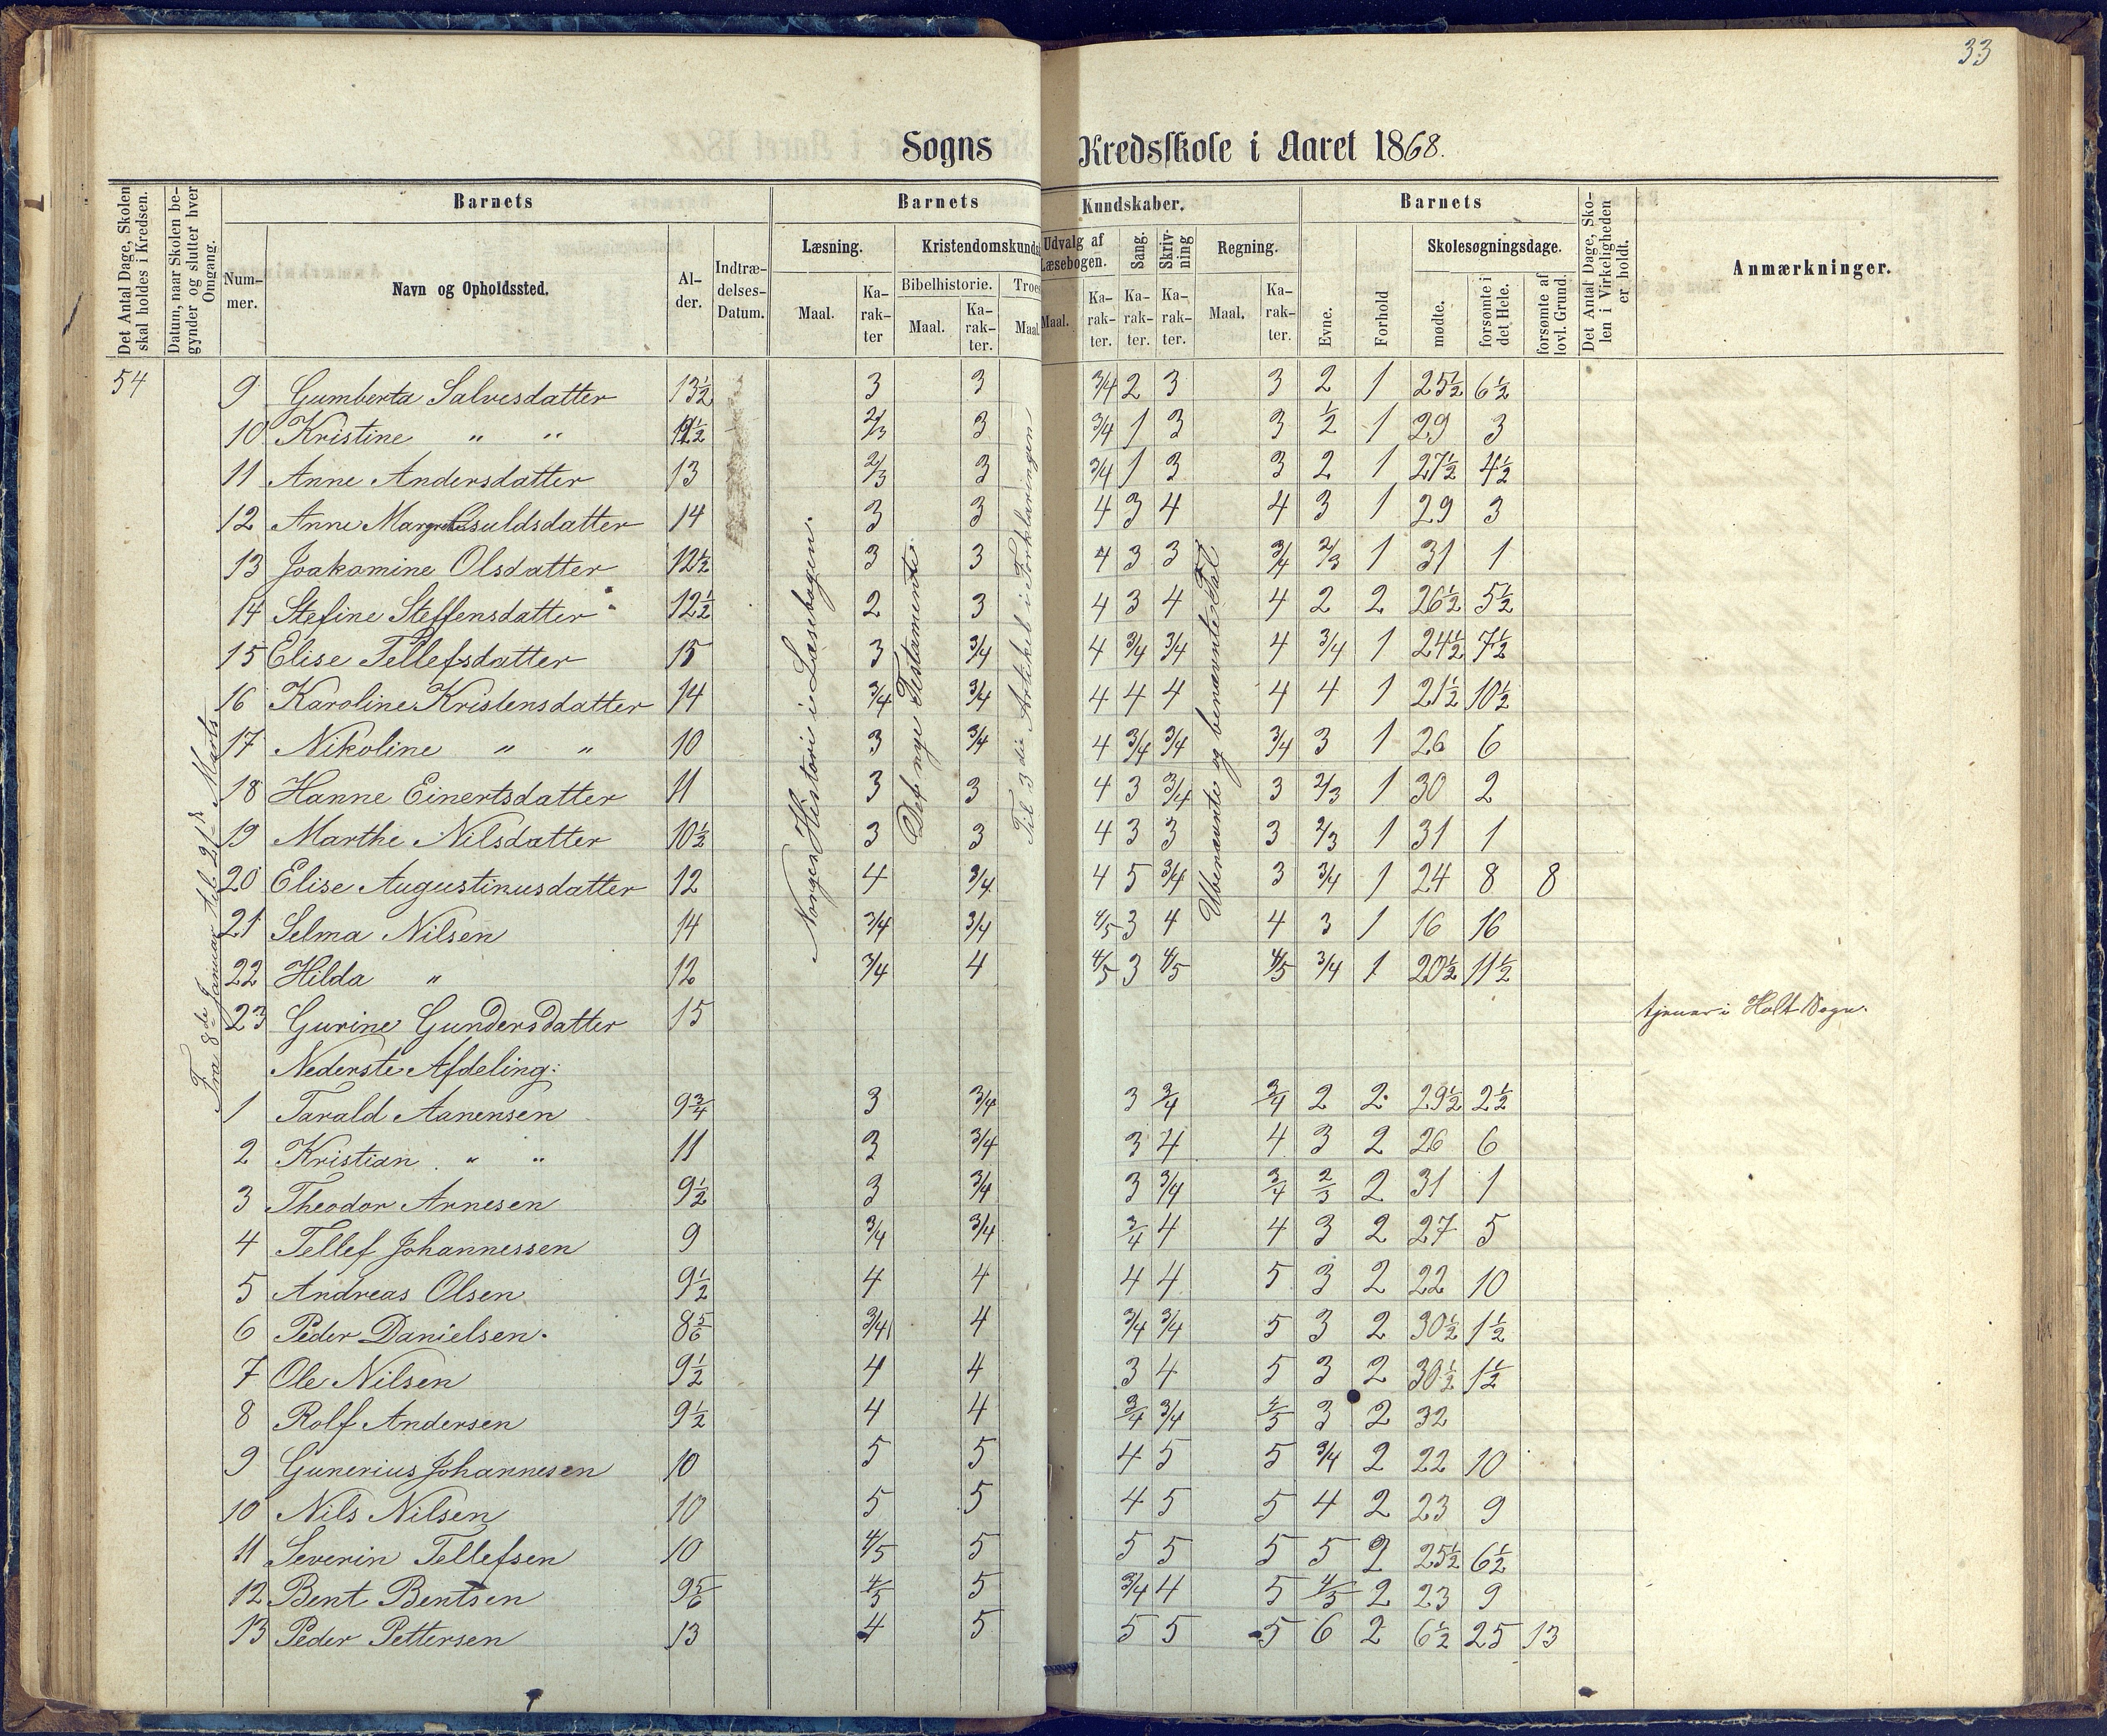 33
Sogns Kredsskole i Aaret 1868.
Det Antal Dage, Skolen skal holdes i Kredsen.
Datum, naar Skolen begynder og slutter hver Omgang.
Barnets
Nummer.
Navn og Opholdssted.
Alder.
Indtrædelses-Datum.
Barnets Kundskaber.
Læsning.
Maal.
Karakter
Kristendomskunds
Bibelhistorie.
Maal.
Karakter.
Troes
Maal.
Udvalg af Læsebogen.
Maal.
Karakter.
Sang.
Karakter.
Skrivning
Karakter.
Regning.
Maal.
Karakter.
Barnets
Evne.
Forhold
Skolesøgningsdage.
mødte.
forsømte i det Hele.
forsømte af lovl. Grund.
Det Antal Dage, Skolen i Virkeligheden er holdt.
Anmærkninger.
54
Fra 8de Januar til 21de Marts
Norges Historie i Læsebogen.
Det nye Testamente
Til 3die Artikel i Forklaringen
Ubenævnte og benævnte Tal
9 Gumberta Salvesdatter 13½ 3 3 3/4 2 3 3 2 1 25½ 6½
10 Kristine " " 11½ 2/3 3 3/4 1 3 3 ½ 1 29 3
11 Anne Andersdatter 13 2/3 3 3/4 1 3 3 2 1 27½ 4½
12 Anne Margrethe Osuldsdatter 14 3 3 4 3 4 4 3 1 29 3
13 Joakomine Olsdatter 12½ 3 3 4 3 3 3/4 2/3 1 31 1
14 Stefine Steffensdatter 12½ 2 3 4 3 4 4 2 2 26½ 5½
15 Elise Tellefsdatter 15 3 3/4 4 3/4 3/4 4 3/4 1 24½ 7½
16 Karoline Kristensdatter 14 3/4 3/4 4 4 4 4 4 1 21½ 10½
17 Nikoline " " 10 3 3/4 4 3/4 3/4 3/4 3 1 26 6
18 Hanne Einertsdatter 11 3 3 4 3 3/4 3 2/3 1 30 2
19 Marthe Nilsdatter 10½ 3 3 4 3 3 3 2/3 1 31 1
20 Elise Augustinusdatter 12 4 3/4 4 5 3/4 3 3/4 1 24 8 8
21 Selma Nilsen 14 3/4 3/4 4/5 3 4 4 3 1 16 16
22 Hilda " 12 3/4 4 4/5 3 4/5 4/5 3/4 1 20½ 11½
23 Gurine Gundersdatter 15 tjener i Holt Sogn.
Nederste Afdeling:
1 Tarald Aanensen 9¾ 3 3/4 3 3/4 3/4 2 2 29½ 2½
2 Kristian " " 11 3 3/4 3 4 4 3 2 26 6
3 Theodor Arnesen 9½ 3 3/4 3 3/4 3/4 2/3 2 31 1
4 Tellef Johannessen 9 3/4 3/4 3/4 4 4 3 2 27 5
5 Andreas Olsen 9½ 4 4 4 4 5 3 2 22 10
6 Peder Danielsen. 8 5/6 3/4 4 3/4 3/4 5 3 2 30½ 1½
7 Ole Nilsen 9½ 4 4 3 4 5 3 2 30½ 1½
8 Rolf Andersen 9½ 4 4 3/4 3/4 4/5 3 2 32
9 Gunerius Johannesen 10 5 5 4 5 5 3/4 2 22 10
10 Nils Nilsen 10 5 5 4 5 5 4 2 23 9
11 Severin Tellefsen 10 4/5 5 5 5 5 5 2 25½ 6½
12 Bent Bentsen 9 5/6 4/5 5 3/4 4 5 4/5 2 23 9
13 Peder Pettersen 13 4 5 5 5 5 6 2 6½ 25 13